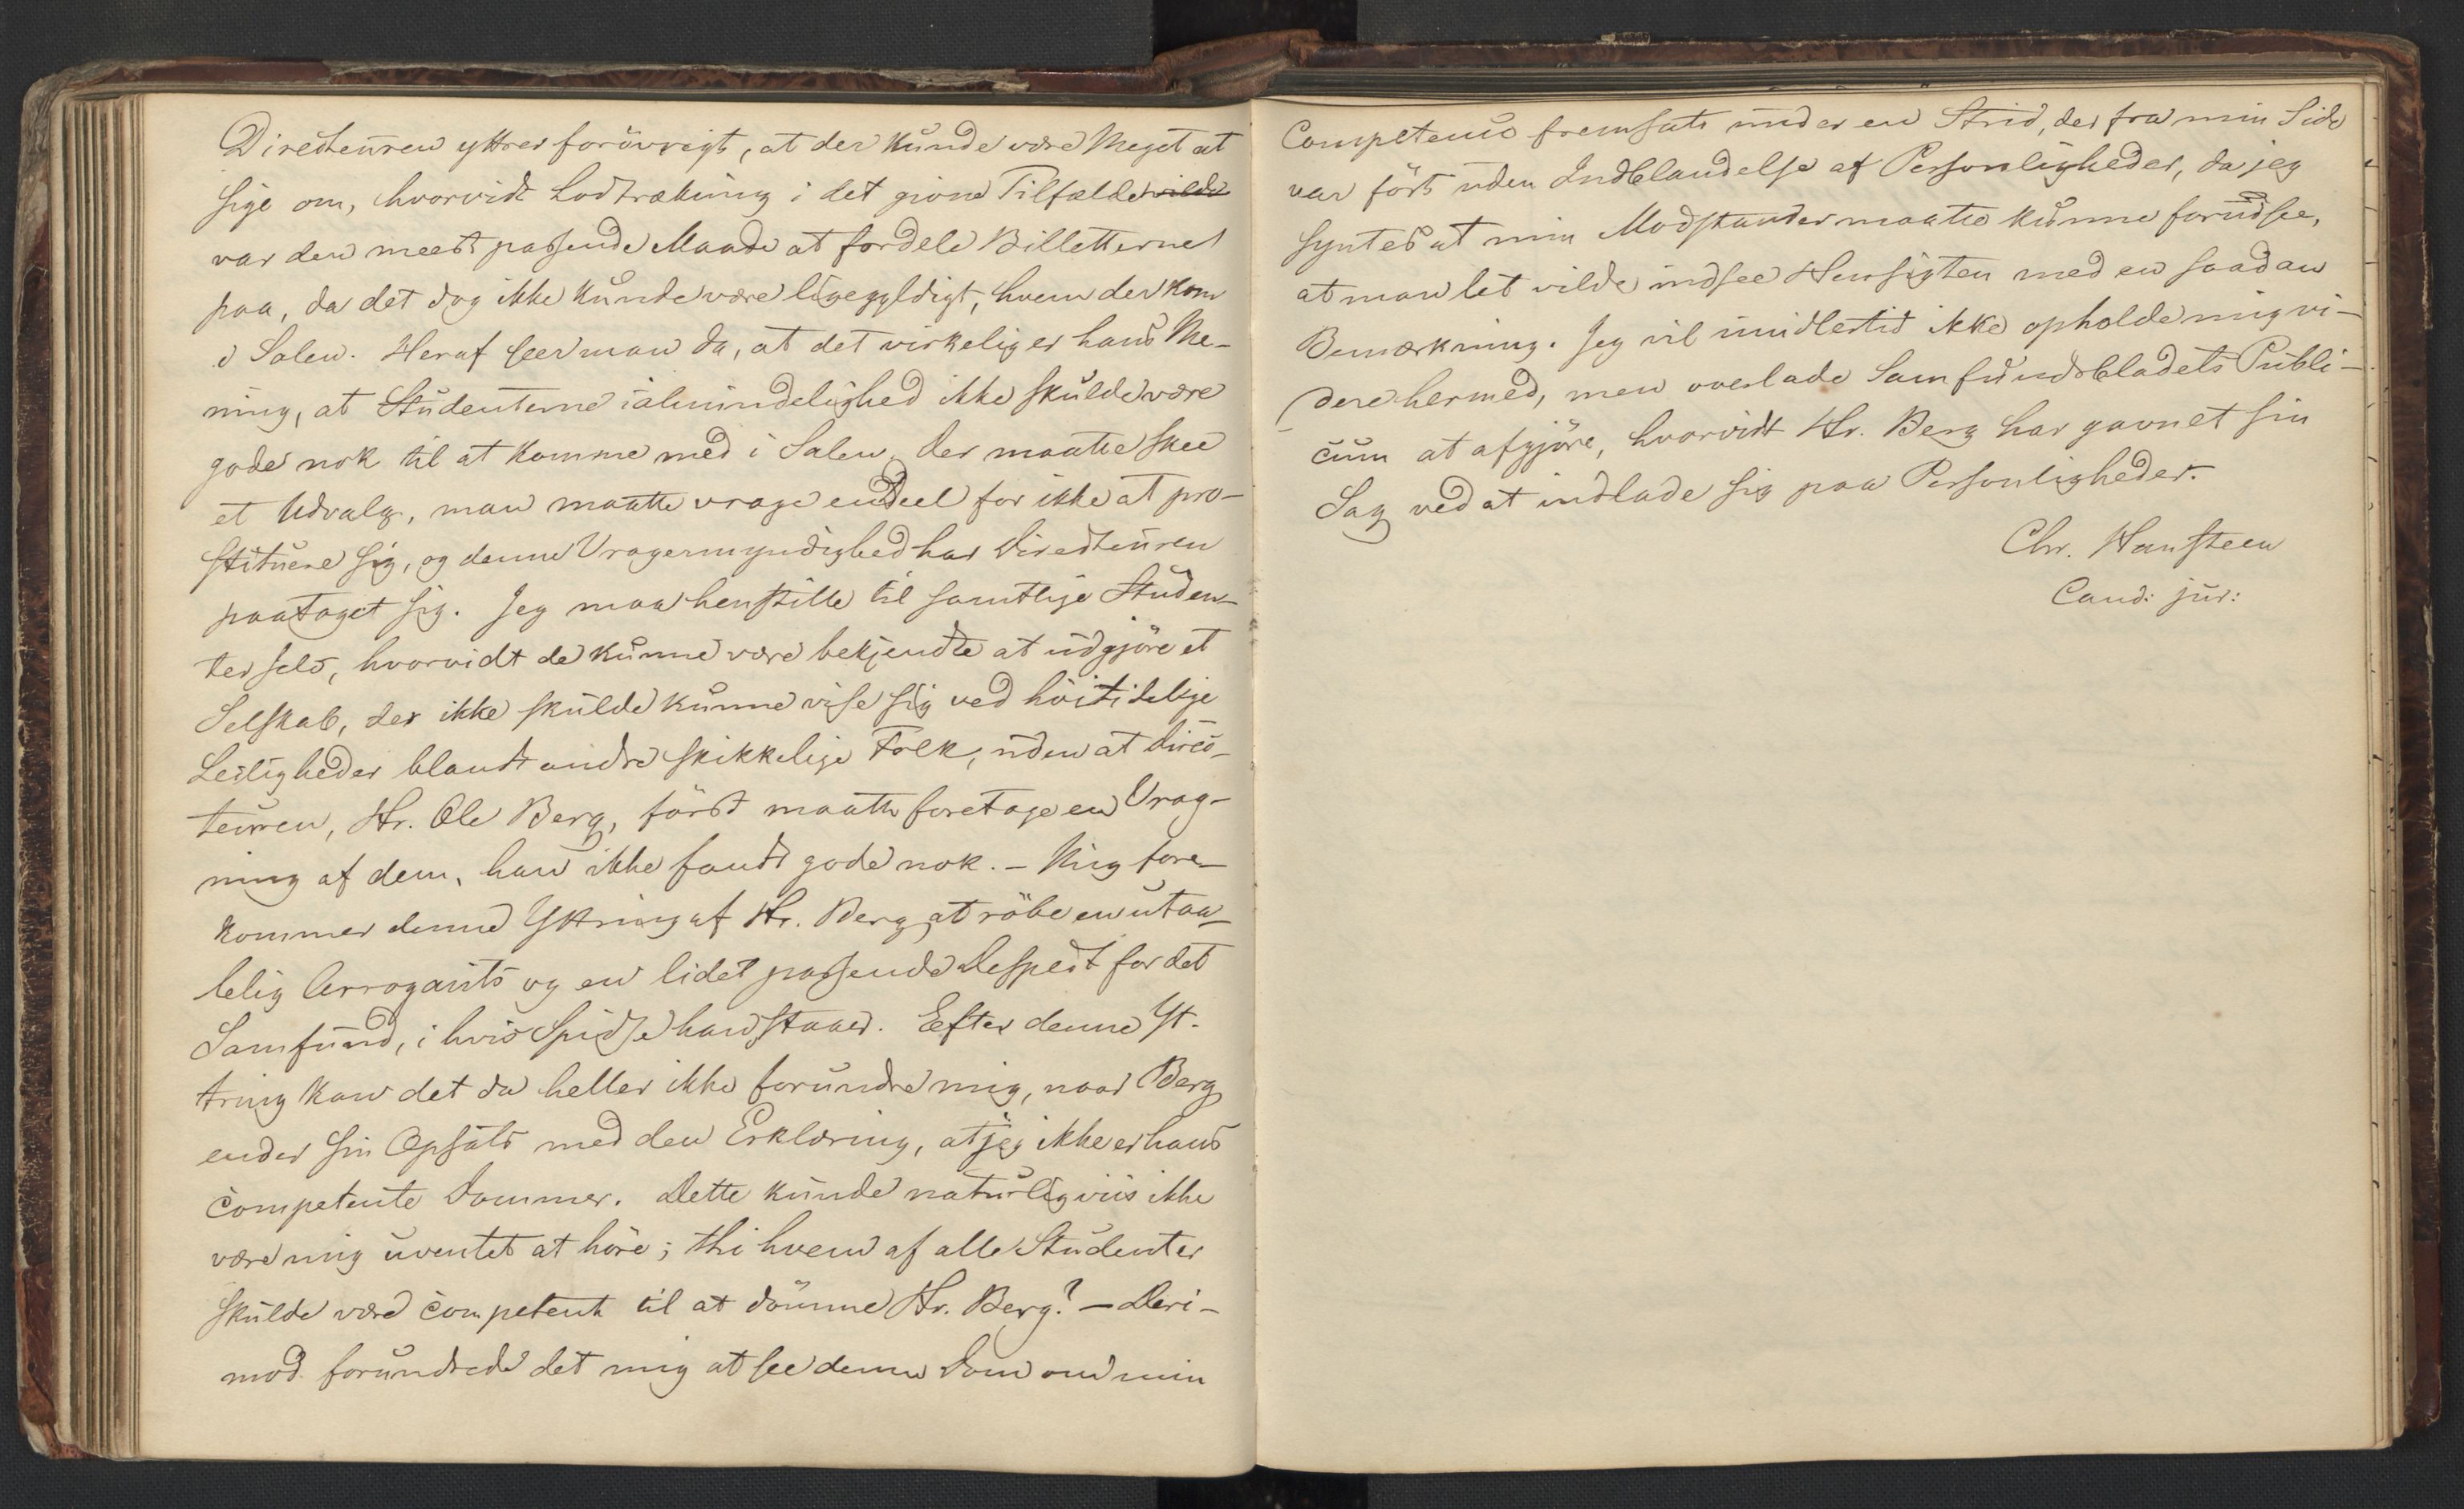 Directeuren yttrer forövrigt, at der kunde være Meget at
sige om, hvorvidt Lodtrækning i det givne Tilfælde vilde
var den meest passende Maade at fordele Billetterne
paa, da det dog ikke kunde være ligegyldigt, hvem der kom
i Salen. Heraf seer man da, at det virkelig er hans Me-
ning, at Studenterne ialmindelighed ikke skulde være
gode nok til at komme med i Salen, der maatte skee
et Udvalg, man maatte vrage endeel for ikke at pro-
stituere sig, og denne Vragermyndighed har Directeuren
paataget sig. Jeg maa henstille til samtlige Studen-
ter selv, hvorvidt de kunne være bekjendte at udgjöre et
Selskab, der ikke skulde kunne vise sig ved höitidelige
Leiligheder blandt andre skikkelige Folk, uden at Direc-
teuren, Hr. Ole Berg, först maatte foretage en Vrag-
ning af dem, han ikke fandt gode nok. – Mig fore-
kommer denne Yttring af Hr. Berg at röbe en utaa-
lelig Arrogants og en lidet passende Despect for det
Samfund, i hvis Spidse han staaer. Efter denne Yt-
tring kan det da heller ikke forundre mig, naar Berg
ender sin Opsats med den Erklæring, at jeg ikke er hans
competente Dommer. Dette kunde naturligviis ikke
være mig uventet at höre; thi hvem af alle Studenter
skulde være competent til at dömme Hr. Berg? – Deri-
mod forundrede det mig at see denne Dom om min
Competence fremsatt under en Strid, der fra min Side
var fört uden Indblandelse af Personligheder, da jeg
syntes at min Modstander maatte kunne forudsee,
at man let vilde indsee Hensigten med en saadan
Bemærkning. Jeg vil imidlertid ikke opholde mig vi-
dere hermed, men overlade Samfundsbladets Publi-
cum at afgjöre, hvorvidt Hr. Berg har gavnet sin
Sag ved at indlade sig paa Personligheder.
Chr. Hansteen
Cand: jur: